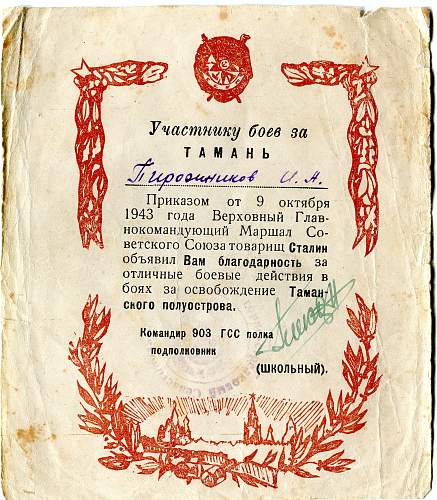 Участнику боев за
ТАМАНЬ
И. А.
Приказом от 9 октября
1943 года Верховный Глав-
нокомандующий Маршал Со-
ветского Союза товарищ Сталин
объявил Вам благодарность за
отличные боевые действия в
боях за освобождение Таман-
ского полуострова.
Командир 903 ГСС полка
подполковник
(ШКОЛЬНЫЙ).